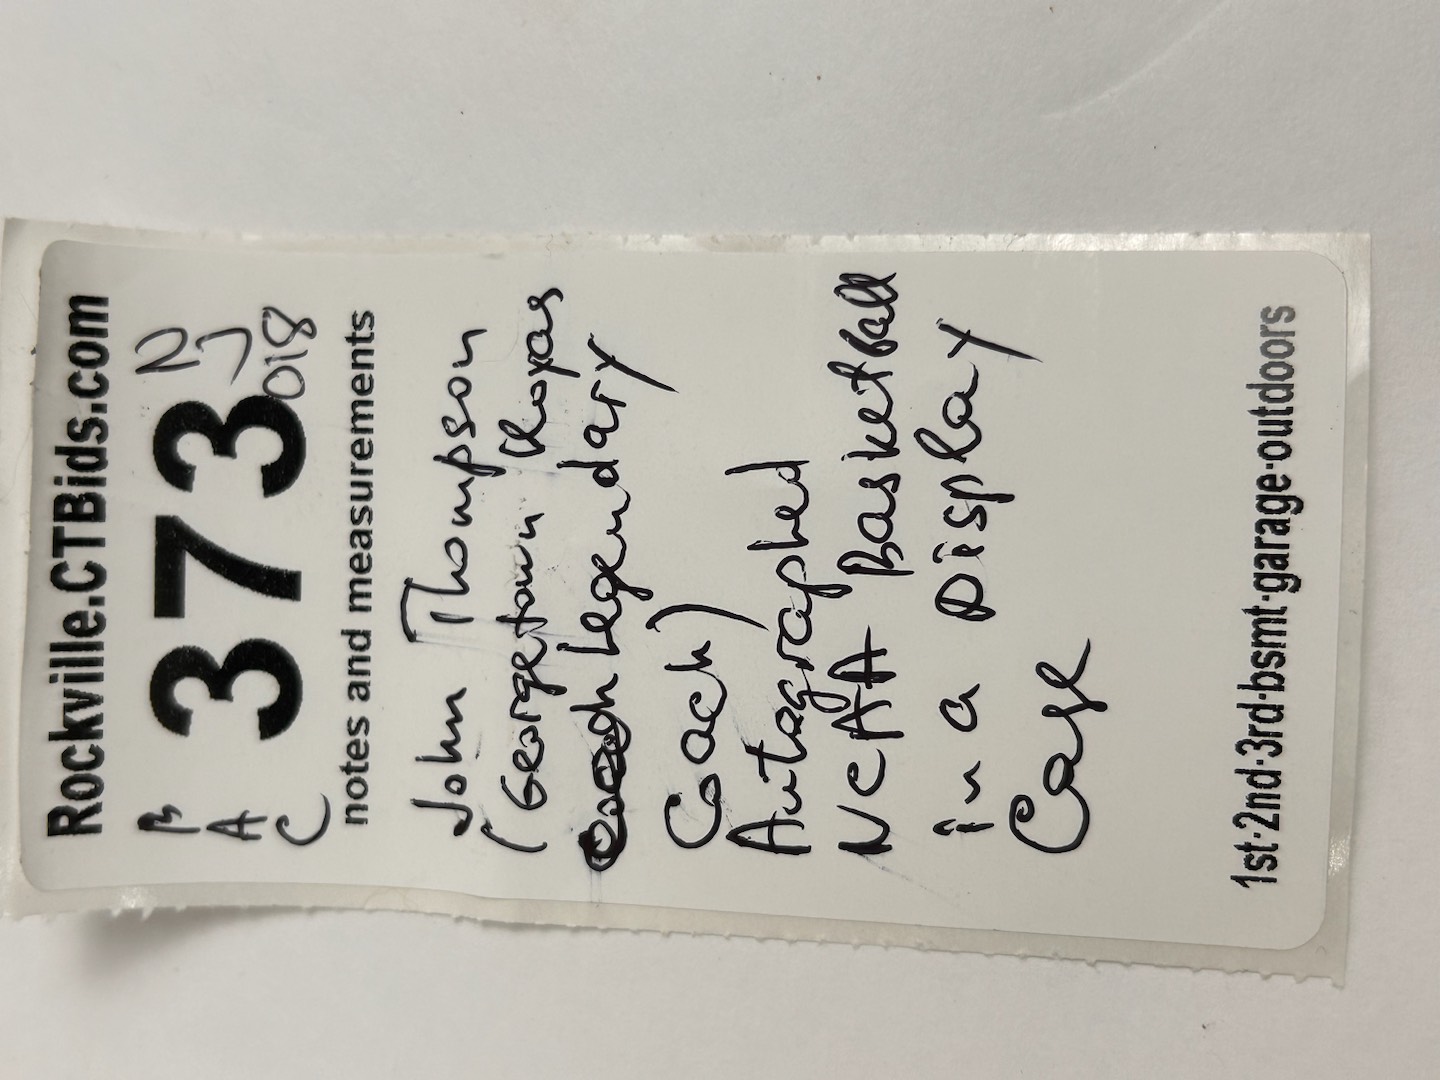 Rockville.CTBids.com
B
A
C
373
N
J
018
notes and measurements
John Thompson
(Georgetown Hoyas
Legendary
Coach)
Autographed
NCAA Basketball
in a Display
Case
1st·2nd·3rd·bsmt·garage·outdoors